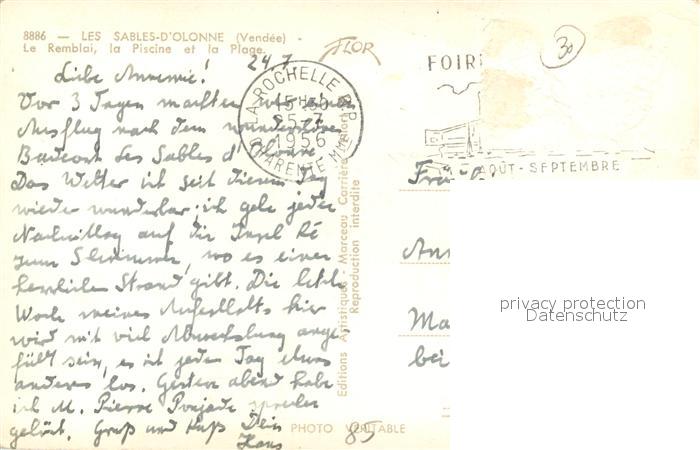 8886 — LES SABLES-D'OLONNE (Vendée) -
Le Remblai, la Piscine et la Plage.
24.7
FLOR
30
Liebe Annemie!
Vor 3 Tagen machten wir einen
Ausflug nach dem wundervollen
Badeort Les Sables d'Olonne.
Das Wetter ist seit diesem Tag
wieder wunderbar; ich gehe jeden
Nachmittag auf die Insel Ré
zum Schwimmen, wo es einen
herrlichen Strand gibt. Die letzte
Woche meines Aufenthalts hier
wird mit viel Abwechslung ange-
füllt sein, es ist jeden Tag etwas
anderes los. Gestern abend habe
ich M. Pierre Poujade sprechen
gehört. Gruß und Kuß Dein
Hans
LA ROCHELLE R.P.
15H30
25-7
1956
CHARENTE MME
FOIR
AOÛT - SEPTEMBRE
Editions Artistiques - Marceau Carrière
Reproduction interdite
Ma
bei
privacy protection
Datenschutz
PHOTO VERITABLE
85